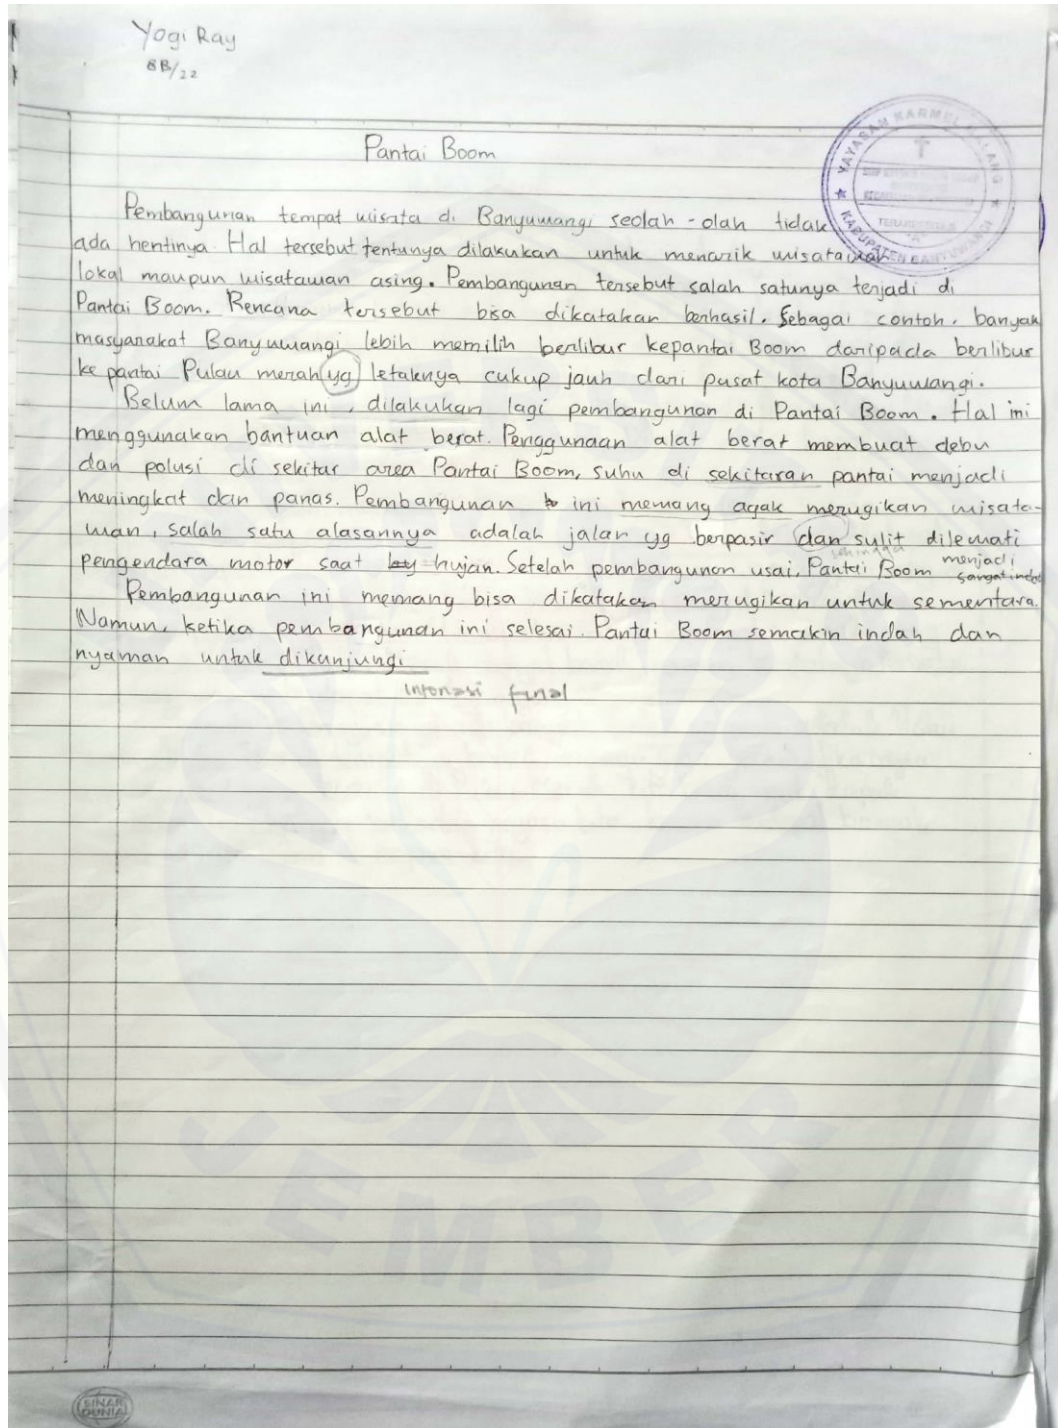 Yogi Ray
8B/22
Pantai Boom
Pembangunan tempat wisata di Banyuwangi seolah-olah tidak
ada hentinya. Hal tersebut tentunya dilakukan untuk menarik wisatawan
lokal maupun wisatawan asing. Pembangunan tersebut salah satunya terjadi di
Pantai Boom. Rencana tersebut bisa dikatakan berhasil. Sebagai contoh, banyak
masyarakat Banyuwangi lebih memilih berlibur kepantai Boom daripada berlibur
ke pantai Pulau merah yg letaknya cukup jauh dari pusat kota Banyuwangi.
Belum lama ini, dilakukan lagi pembangunan di Pantai Boom. Hal ini
menggunakan bantuan alat berat. Penggunaan alat berat membuat debu
dan polusi di sekitar area Pantai Boom, suhu di sekitaran pantai menjadi
meningkat dan panas. Pembangunan ini memang agak merugikan wisata-
wan, salah satu alasannya adalah jalan yg berpasir dan sulit dilewati
sehingga
pengendara motor saat hujan. Setelah pembangunan usai, Pantai Boom menjadi
sangat indah
Pembangunan ini memang bisa dikatakan merugikan untuk sementara.
Namun, ketika pembangunan ini selesai. Pantai Boom semakin indah dan
nyaman untuk dikunjungi
Intonasi final
YAYASAN KARMEL MALANG
KABUPATEN BANYUWANGI
SINAR
DUNIA
JEMBER